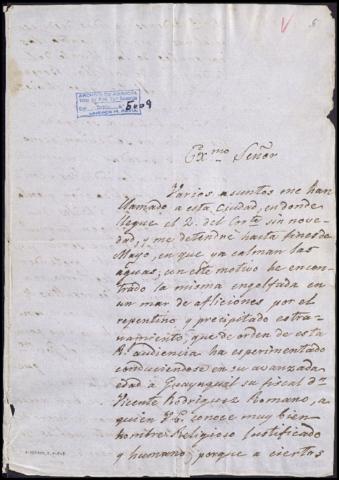 6
ARCHIVO DE
5009
Exmo. Señor
Varios asuntos me han
llamado a esta Ciudad, en donde
llegue el 2. del Corte. sin nove-
dad, y me detendré hasta fines de
Mayo, en que ya calman las
aguas; con este motivo he encon-
trado la misma engolfada en
un mar de afliciones por el
repentino y precipitado estra-
ñamiento, que de orden de esta
Rl. audiencia ha esperimentado
conduciendose en su avanzada
edad á Guayaquil su fiscal Dn.
Vicente Rodriguez Romano, a
quien V.E. conoce muy bien
hombre Religioso Justificado
y humano; porque a ciertos